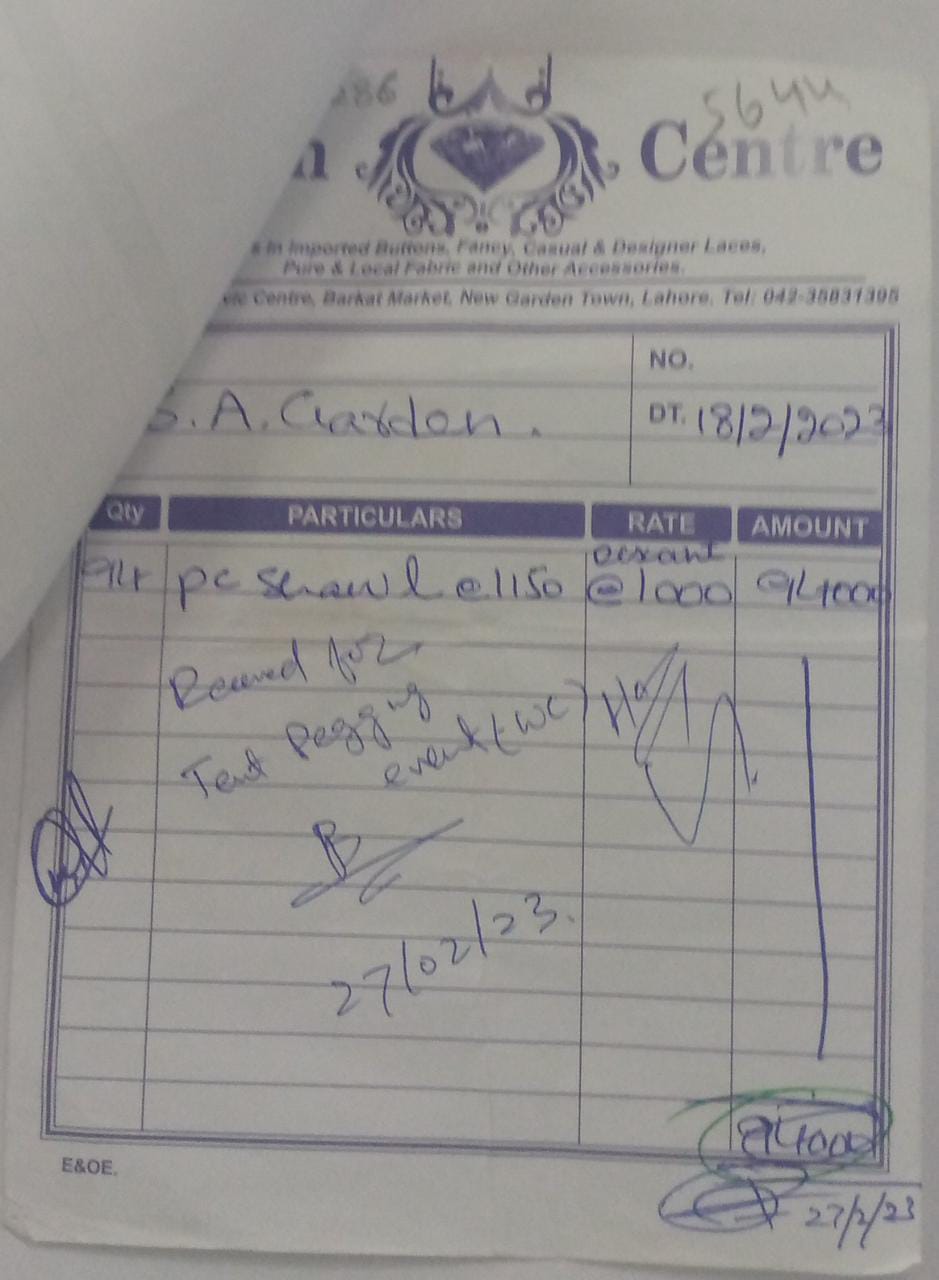 286
5644
n Centre
s in Imported Buttons, Fancy, Casual & Designer Laces,
Pure & Local Fabric and Other Accessories.
vic Centre, Barkat Market, New Garden Town, Lahore. Tel: 042-35831395
NO.
S. A. Garden. DT. 18/2/2023
Qty PARTICULARS RATE AMOUNT
94 pc Shawl @ 1150 @ 1000 94000
for
Tent Pegging
event (WC)
27/02/23.
94000
E&OE.
27/2/23